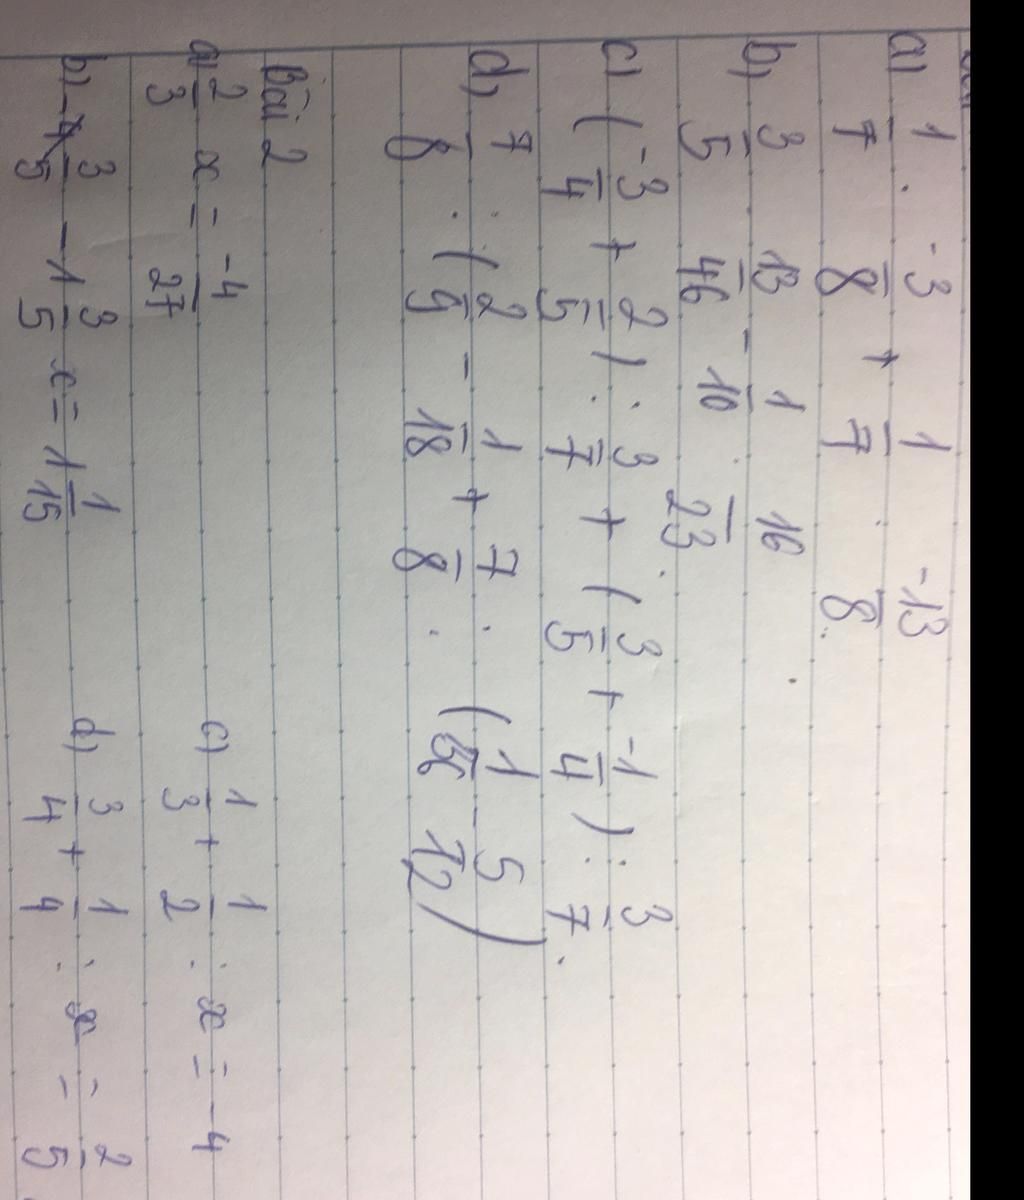 a) 1/7 . -3/8 + 1/7 . -13/8.
b) 3/5 . 13/46 - 1/10 . 16/23.
c) (-3/4 + 2/5) : 3/7 + (3/5 + -1/4) : 3/7.
d) 7/8 : (2/9 - 1/18) + 7/8 : (1/36 - 5/12)
bài 2
a) 2/3 x = -4/27
c) 1/3 + 1/2 : x = -4
b) - 3/5 - 1 3/5 x = 1 1/15
d) 3/4 + 1/4 : x = 2/5